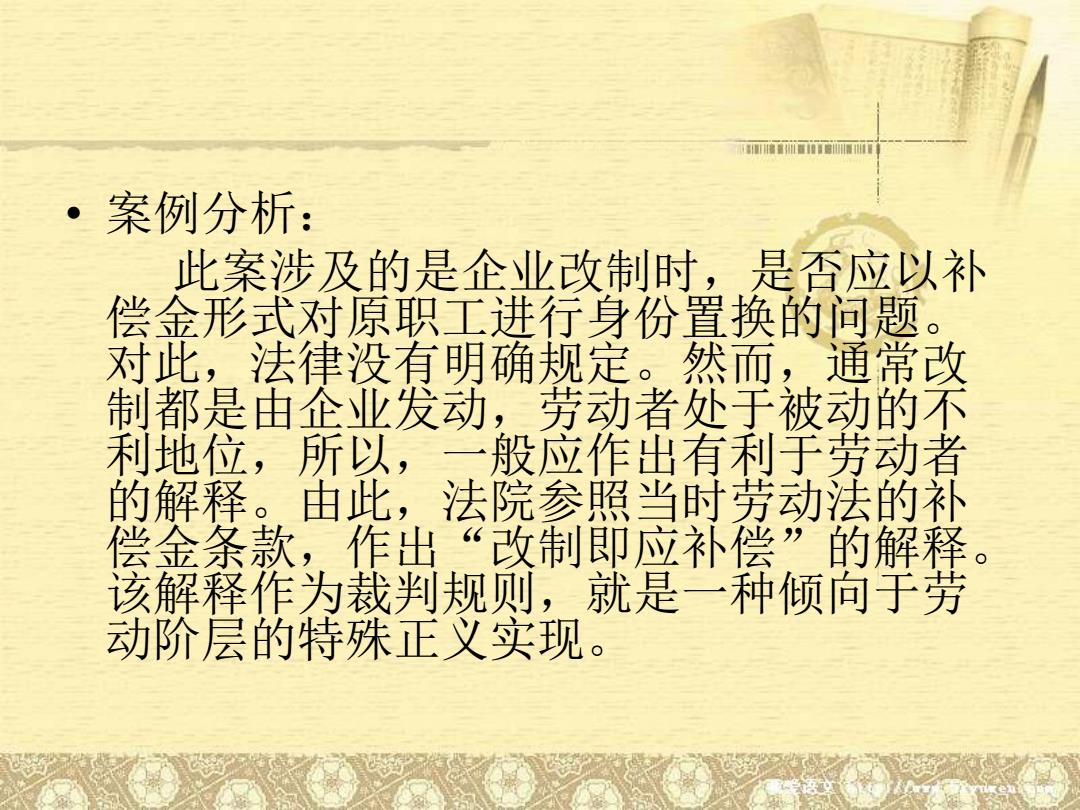 • 案例分析：
此案涉及的是企业改制时，是否应以补
偿金形式对原职工进行身份置换的问题。
对此，法律没有明确规定。然而，通常改
制都是由企业发动，劳动者处于被动的不
利地位，所以，一般应作出有利于劳动者
的解释。由此，法院参照当时劳动法的补
偿金条款，作出“改制即应补偿”的解释。
该解释作为裁判规则，就是一种倾向于劳
动阶层的特殊正义实现。